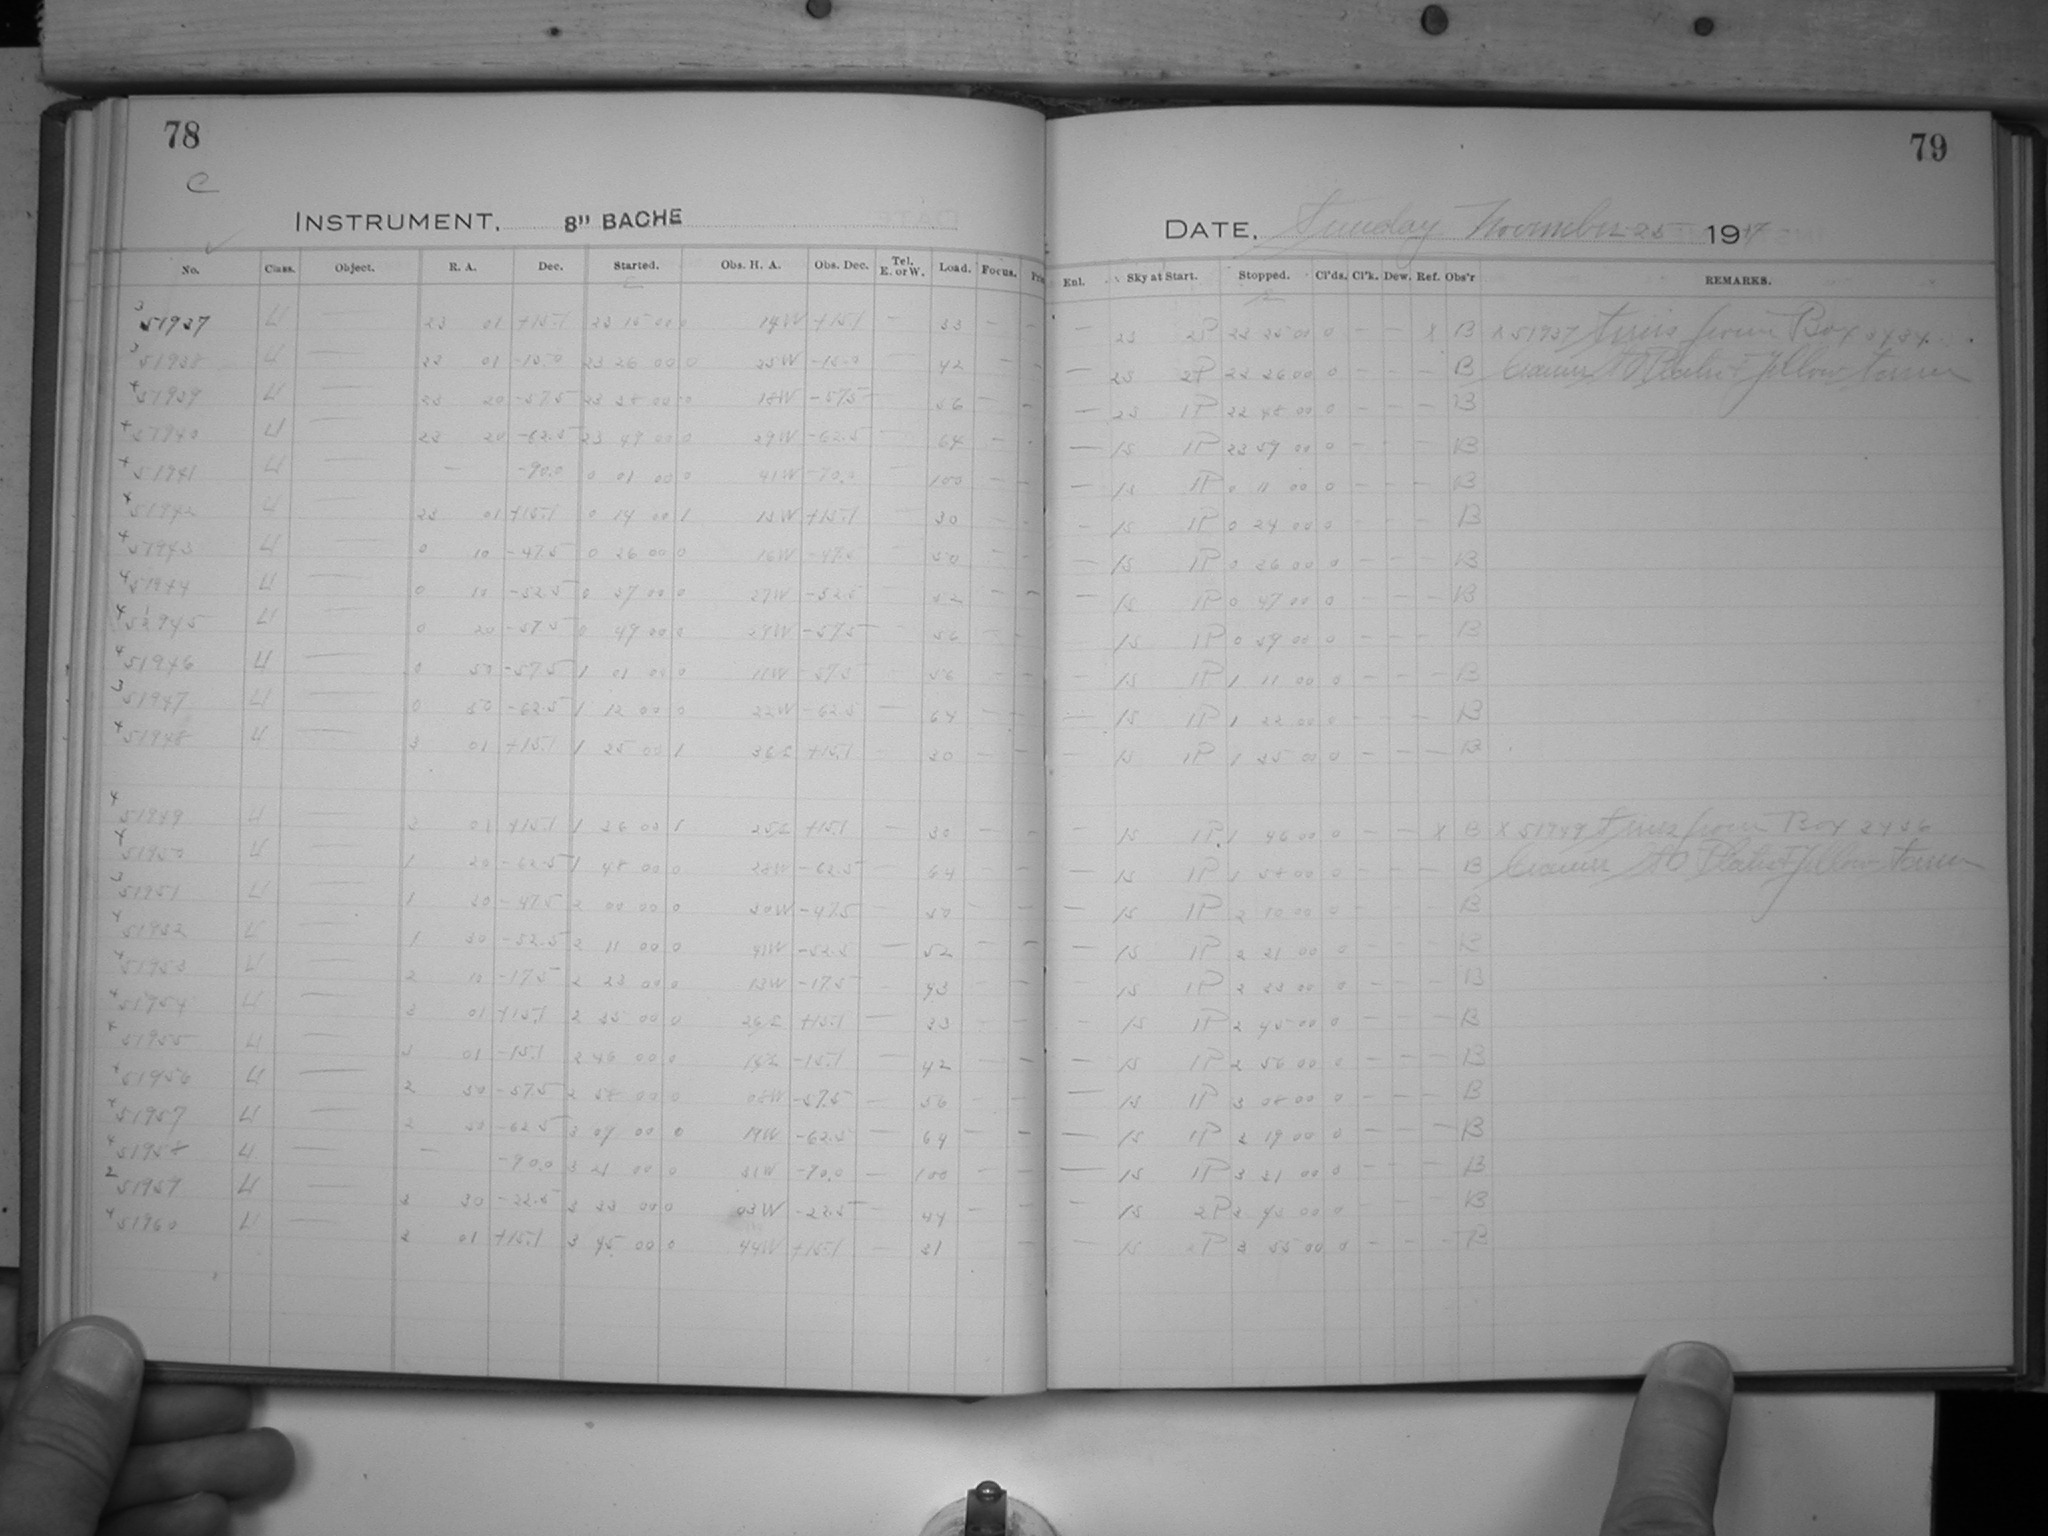 78
C
INSTRUMENT, 8" BACHE
No. Class. Object. R. A. Dec. Started. Obs. H. A. Obs. Dec. Tel. E. or W. Load. Focus.
3 51937 4 — 23 01 +15.1 23 15 00 0 14W +15.1 — 33 —
3 51938 4 — 23 01 -15.0 23 26 00 0 25W -15.0 42 —
4 51939 4 — 23 20 -57.5 23 38 00 0 18W -57.5 — 56 —
4 51940 4 — 23 20 -62.5 23 49 00 0 29W -62.5 — 64 —
4 51941 4 — — -90.0 0 01 00 0 41W -90.0 — 100 —
4 51942 4 — 23 01 +15.1 0 14 00 1 +15.1 — 30 —
4 51943 4 — 0 10 -47.5 0 26 00 0 16W -47.5 — 50 —
4 51944 4 — 0 10 -52.5 0 37 00 0 27W -52.5 — 52 —
4 51945 4 — 0 20 -57.5 0 49 00 0 29W -57.5 — 56 —
4 51946 4 — 0 50 -57.5 1 01 00 0 11W -57.5 56 —
3 51947 4 — 0 50 -62.5 1 12 00 0 22W -62.5 — 64 —
4 51948 4 — 01 +15.1 1 25 00 1 36E +15.1 — 30 —
4 51949 4 — 01 +15.1 1 36 00 1 25E +15.1 — 30 —
4 51950 4 — 1 20 -62.5 1 48 00 0 28W -62.5 — 64 —
3 51951 4 — 1 30 -47.5 2 00 00 0 30W -47.5 — 50 —
4 51952 4 — 1 30 -52.5 2 11 00 0 41W -52.5 — 52 —
4 51953 4 — 2 10 -17.5 2 23 00 0 13W -17.5 — 43 —
4 51954 4 — 3 01 +15.1 2 35 00 0 26E +15.1 — 33 —
4 51955 4 — 3 01 -15.1 2 46 00 0 15E -15.1 — 42 —
4 51956 4 — 2 50 -57.5 2 58 00 0 08W -57.5 — 56 —
4 51957 4 — 2 50 -62.5 3 09 00 0 19W -62.5 — 64 —
4 51958 4 — — -90.0 3 21 00 0 31W -90.0 — 100 —
2 51959 4 — 3 30 -22.5 3 33 00 0 03W -22.5 — 44 —
4 51960 4 — 01 +15.1 3 45 00 0 44W +15.1 — 31
79
DATE, Sunday November 25 1917
Enl. Sky at Start. Stopped. Cl'ds. Cl'k. Dew. Ref. Obs'r REMARKS.
— 23 2P 23 25 00 0 — — X B X 51937 first from Box 3434
— 23 2P 23 36 00 0 — — — B Cramer Plates Yellow
— 23 1P 23 48 00 0 — — — B
— 15 1P 23 59 00 0 — — — B
— 15 1P 0 11 00 0 — — — B
— 15 1P 0 24 00 0 — — — B
— 15 1P 0 36 00 0 — — — B
— 15 1P 0 47 00 0 — — — B
— 15 1P 0 59 00 0 — — — B
— 15 1P 1 11 00 0 — — — B
— 15 1P 1 22 00 0 — — — B
— 15 1P 1 35 00 0 — — — B
— 15 1P 1 46 00 0 — — X B X 51949 first from Box 3436
— 15 1P 1 58 00 0 — — — B Cramer Plates Yellow
— 15 1P 2 10 00 0 — — — B
— 15 1P 2 21 00 0 — — — B
— 15 1P 2 33 00 0 — — — B
— 15 1P 2 45 00 0 — — — B
— 15 1P 2 56 00 0 — — — B
— 15 1P 3 08 00 0 — — — B
— 15 1P 3 19 00 0 — — — B
— 15 1P 3 31 00 0 — — — B
— 15 2P 3 43 00 0 — — — B
— 15 2P 3 55 00 0 — — — B